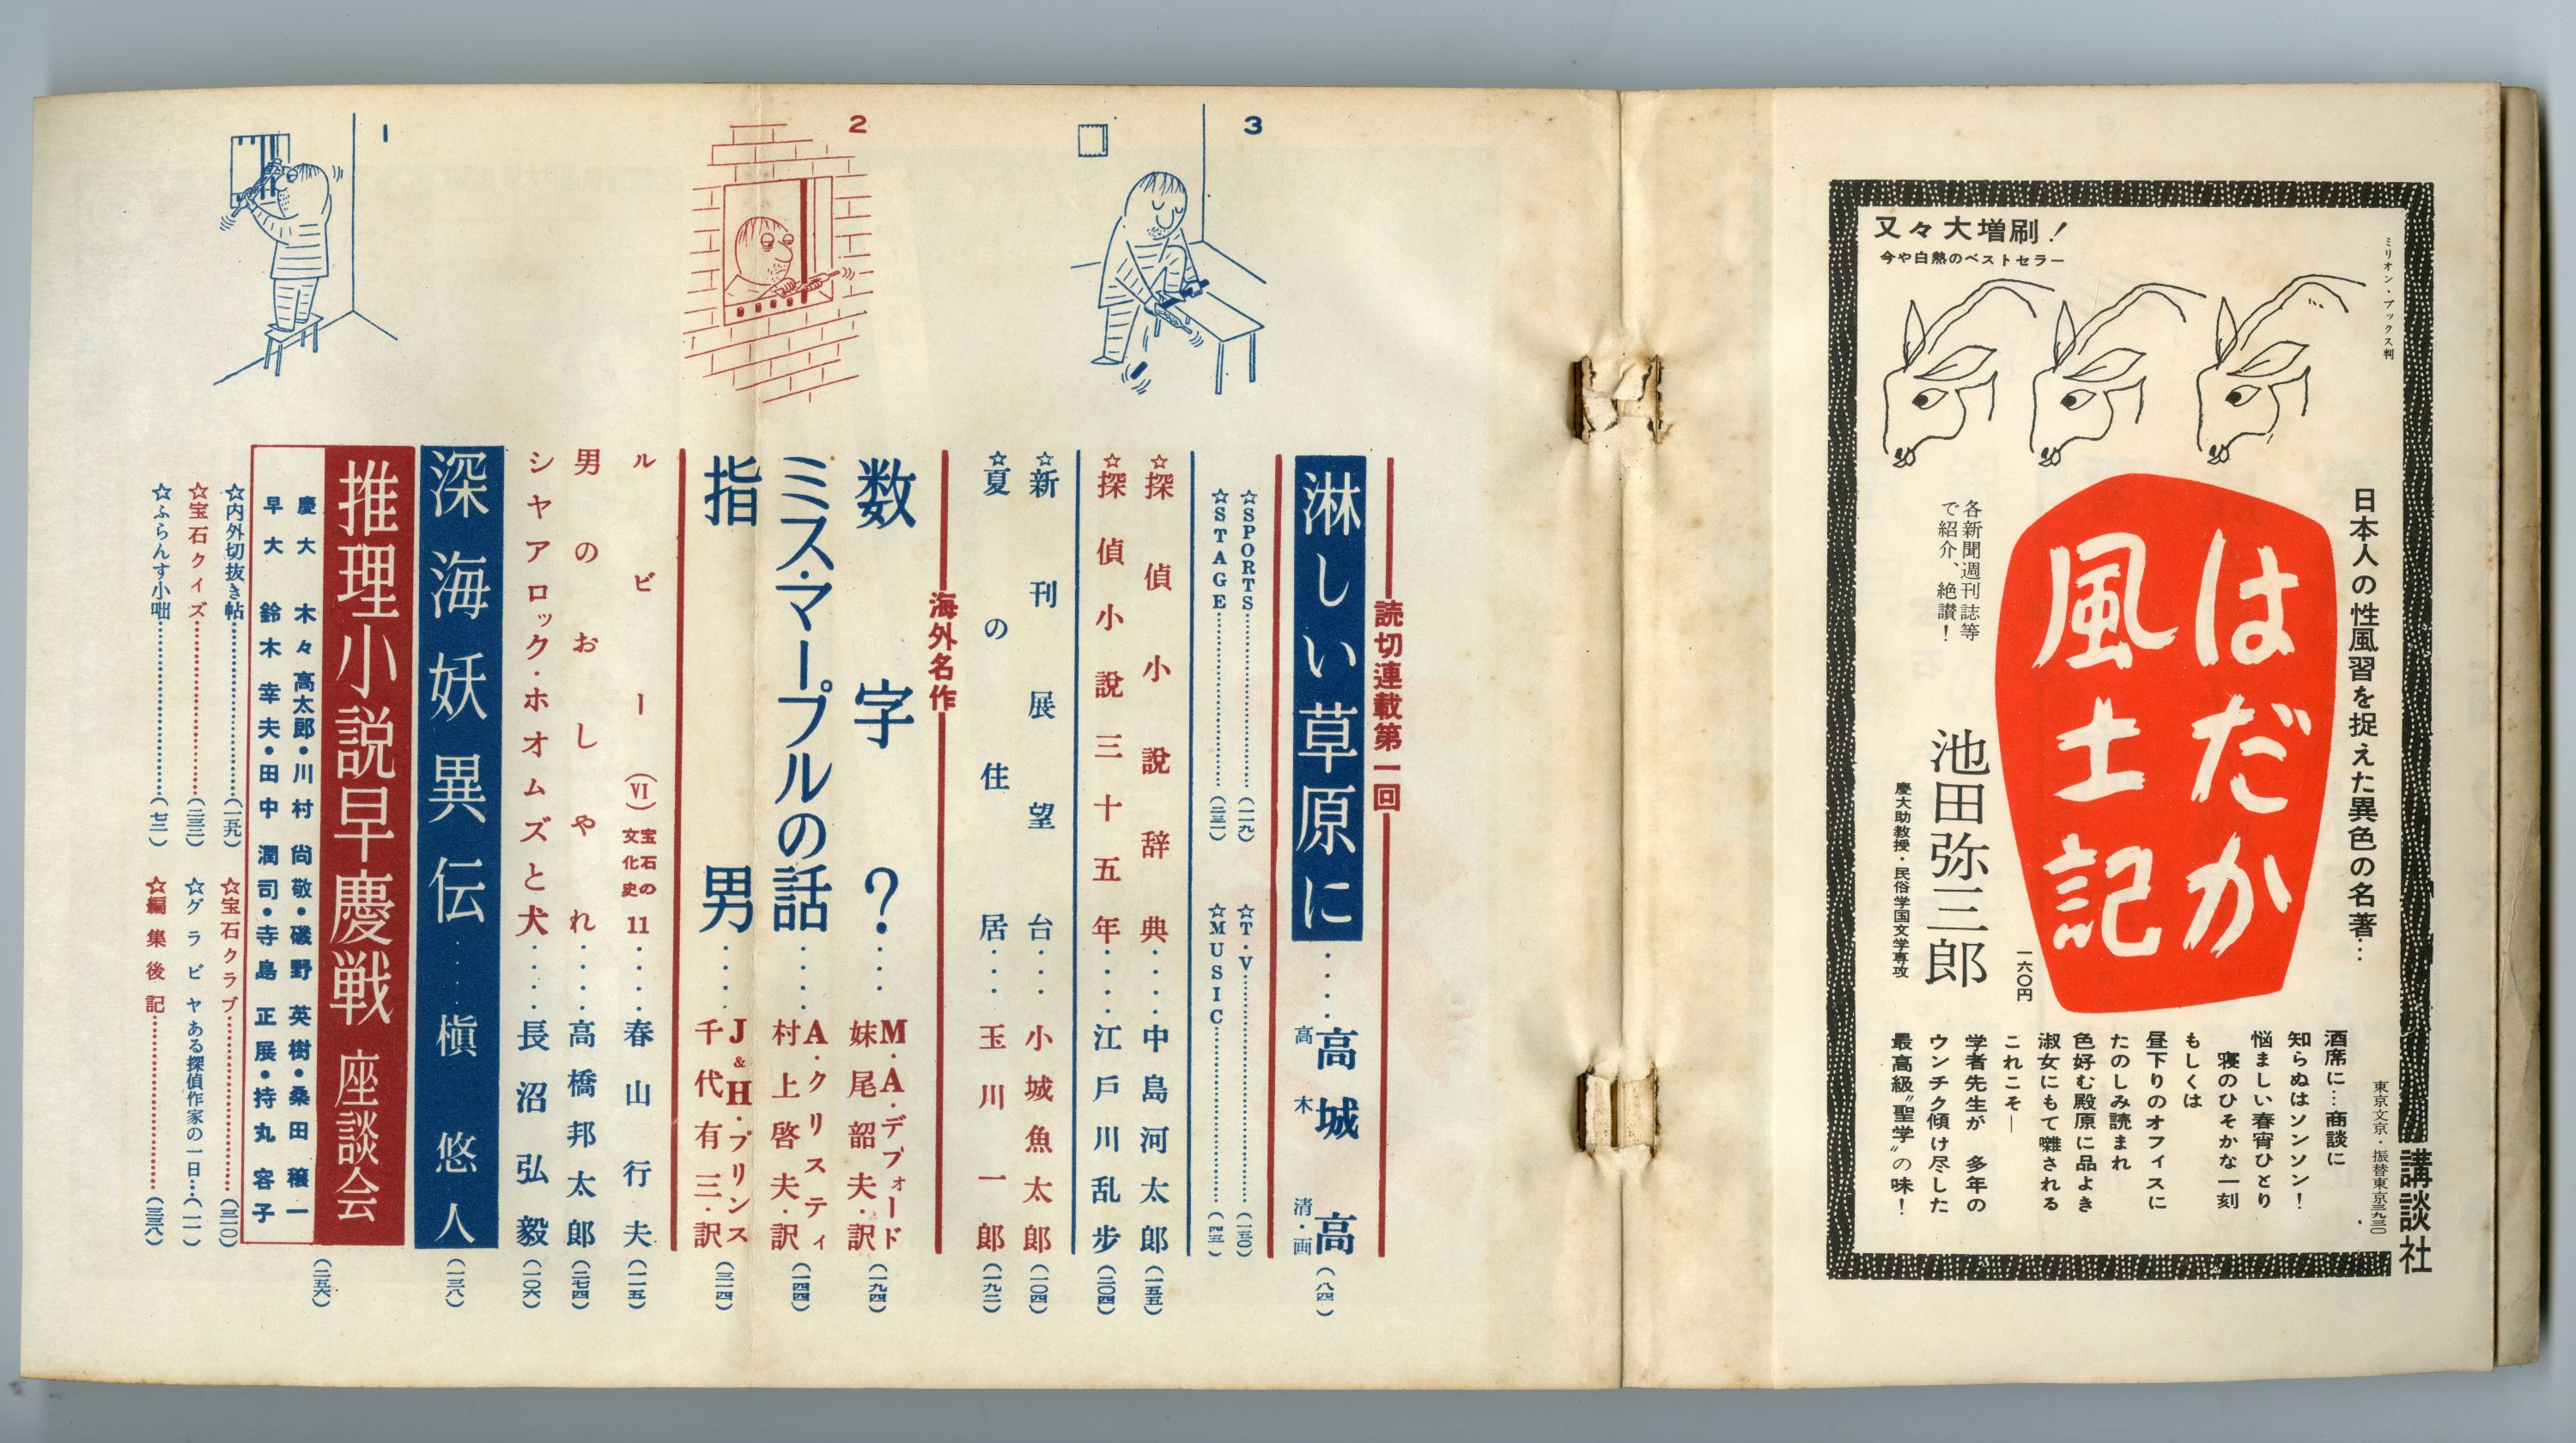 ミリオン・ブックス判
又々大増刷！
今や白熱のベストセラー
日本人の性風習を捉えた異色の名著…
はだか
風土記
各新聞週刊誌等
で紹介、絶讃！
池田弥三郎
慶大助教授・民俗学国文学専攻
一六〇円
酒席に…商談に
知らぬはソンソン！
悩ましい春宵ひとり
寝のひそかな一刻
もしくは
昼下りのオフィスに
たのしみ読まれ
色好む殿原に品よき
淑女にもて囃される
これこそ―
学者先生が 多年の
ウンチク傾け尽した
最高級〝聖学〟の味！
講談社
3
2
1
読切連載第一回
淋しい草原に……高城高（八四）
高木清・画
☆SPORTS……（一一九）
☆T・V……（一五〇）
☆STAGE……（二三一）
☆MUSIC……（四五）
☆探偵小説辞典……中島河太郎（一五五）
☆探偵小説三十五年……江戸川乱歩（二〇四）
☆新刊展望台……小城魚太郎（一〇四）
☆夏の住居……玉川一郎（一九二）
海外名作
数字？……M・A・デフォード
妹尾韶夫・訳（一九四）
ミス・マープルの話……A・クリスティ
村上啓夫・訳（一四四）
指男……J&H・プリンス
千代有三・訳（三一四）
ルビー（Ⅵ）宝石の文化史11……春山行夫（一一五）
男のおしゃれ……高橋邦太郎（二七四）
シヤアロック・ホオムズと犬……長沼弘毅（一〇六）
深海妖異伝……槇悠人（一三八）
推理小説早慶戦 座談会（二五六）
慶大 木々高太郎・川村尚敬・磯野英樹・桑田穣一
早大 鈴木幸夫・田中潤司・寺島正展・持丸容子
☆内外切抜き帖……（一五九）
☆宝石クラブ……（三一〇）
☆宝石クイズ……（二三二）
☆グラビヤある探偵作家の一日…（一一）
☆ふらんす小咄……（七三）
☆編集後記……（三三八）